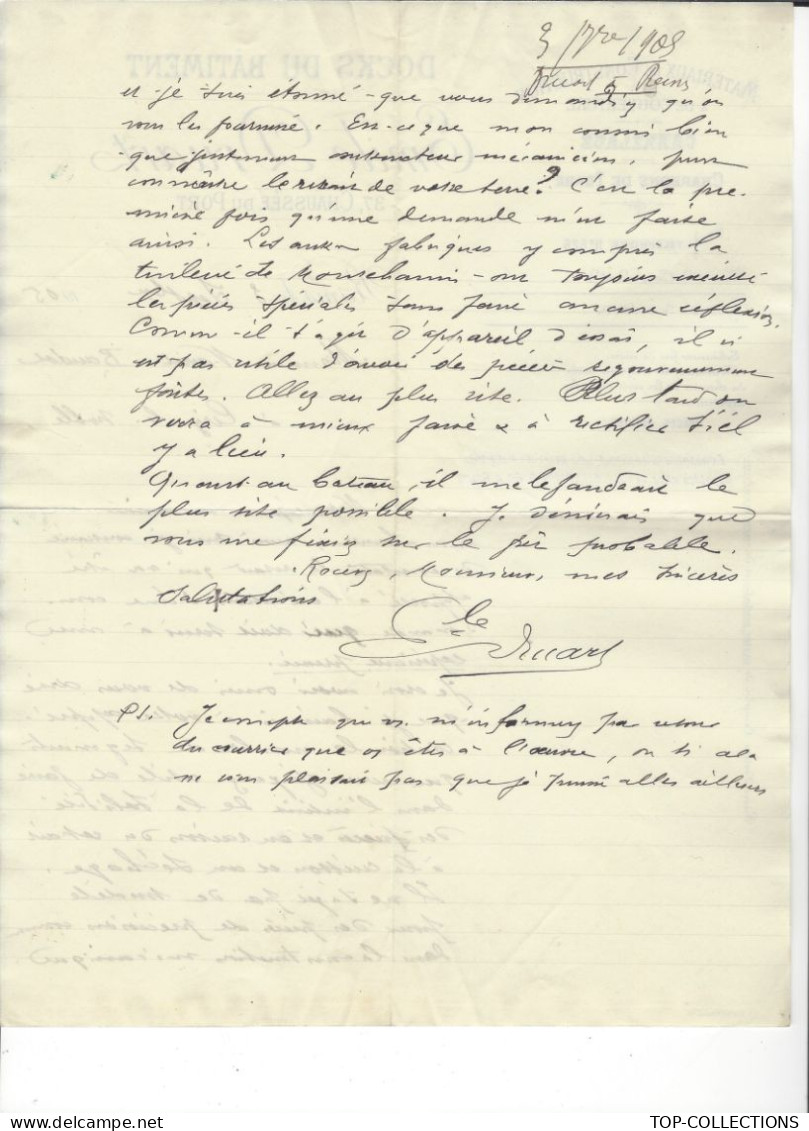 3 / 7re / 1905
Druart à Reims
et je suis étonné que vous demandiez qu'on
vous les fournisse. Est-ce que mon cousin bien
que justement constructeur mécanicien, peut
connaître le retrait de votre terre ? C'est la pre-
mière fois qu'une demande m'est faite
ainsi. Les autres fabriques y compris la
tuilerie de Montchanin - ont toujours exécuté
les pièces spéciales sans faire aucune réflexion.
Comme il s'agit d'appareil d'essai, il n'
est pas utile d'avoir des pièces rigoureusement
faites. Allez au plus vite. Plus tard on
verra à mieux faire & à rectifier s'il
y a lieu.
Quant au bateau, il me le faudrait le
plus vite possible. Je désirerais que
vous me fixiez sur le prix probable.
Recevez, Monsieur, mes sincères
Salutations
Druart
PS. Je compte que vs m'informerez par retour
du courrier que vs êtes à l'œuvre, ou si cela
ne vous plaisait pas que je puisse aller ailleurs
DOCKS DU BATIMENT
TOP-COLLECTIONS